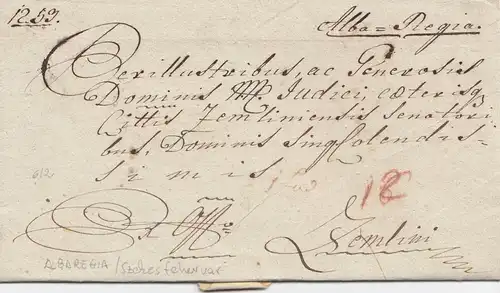 1253.
Alba=Regia.
Perillustribus, ac Generosis
Dominis NN. Judici, cæterisq
Cittis Zemliniensis Senatori
bus, Dominis singColendis=
simis
612
18
Ex Offo
Zemlini
ALBAREGIA / Szekesfehervar